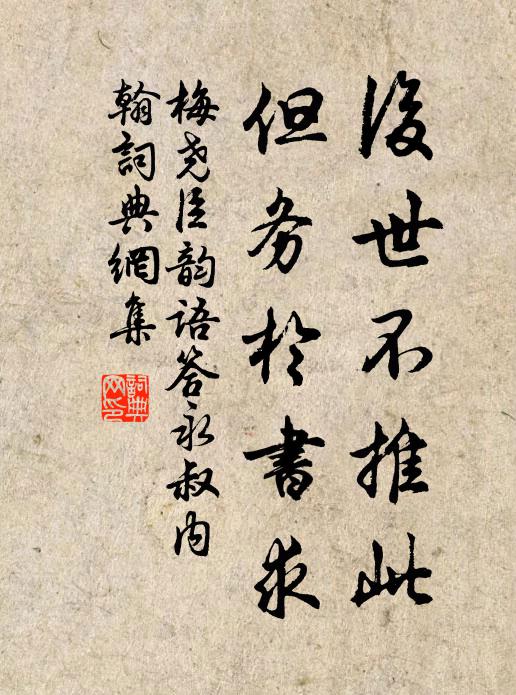 後世不推此
但务於書求
梅尧臣韵語答永叔内
翰詞典網集
詞典网印